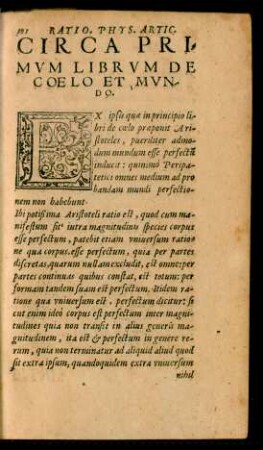 101 RATIO. PHYS. ARTIC.
CIRCA PRI-
MVM LIBRVM DE
COELO ET MVN-
DO.
EX ipsis quæ in principio li-
bri de cœlo proponit Ari-
stoteles, pueriliter admo-
dum mundum esse perfectũ
inducit: quinimò Peripa-
tetici omnes medium ad pro
bandam mundi perfectio-
nem non habebunt.
Ibi potissima Aristoteli ratio est, quod cum ma-
nifestum sit intra magnitudinis species corpus
esse perfectum, patebit etiam vniuersum ratio
ne qua corpus, esse perfectum, quia per partes
discretas, quarum nullam excludit, est omne: per
partes continuas quibus constat, est totum: per
formam tandem suam est perfectum. Itidem ra
tione qua vniuersum est, perfectum dicitur: si
cut enim ideò corpus est perfectum inter magni
tudines quia non transit in alius generis ma-
gnitudinem, ita est & perfectum in genere re-
rum, quia non terminatur ad aliquid aliud quod
sit extra ipsum, quandoquidem extra vniuersum
nihil